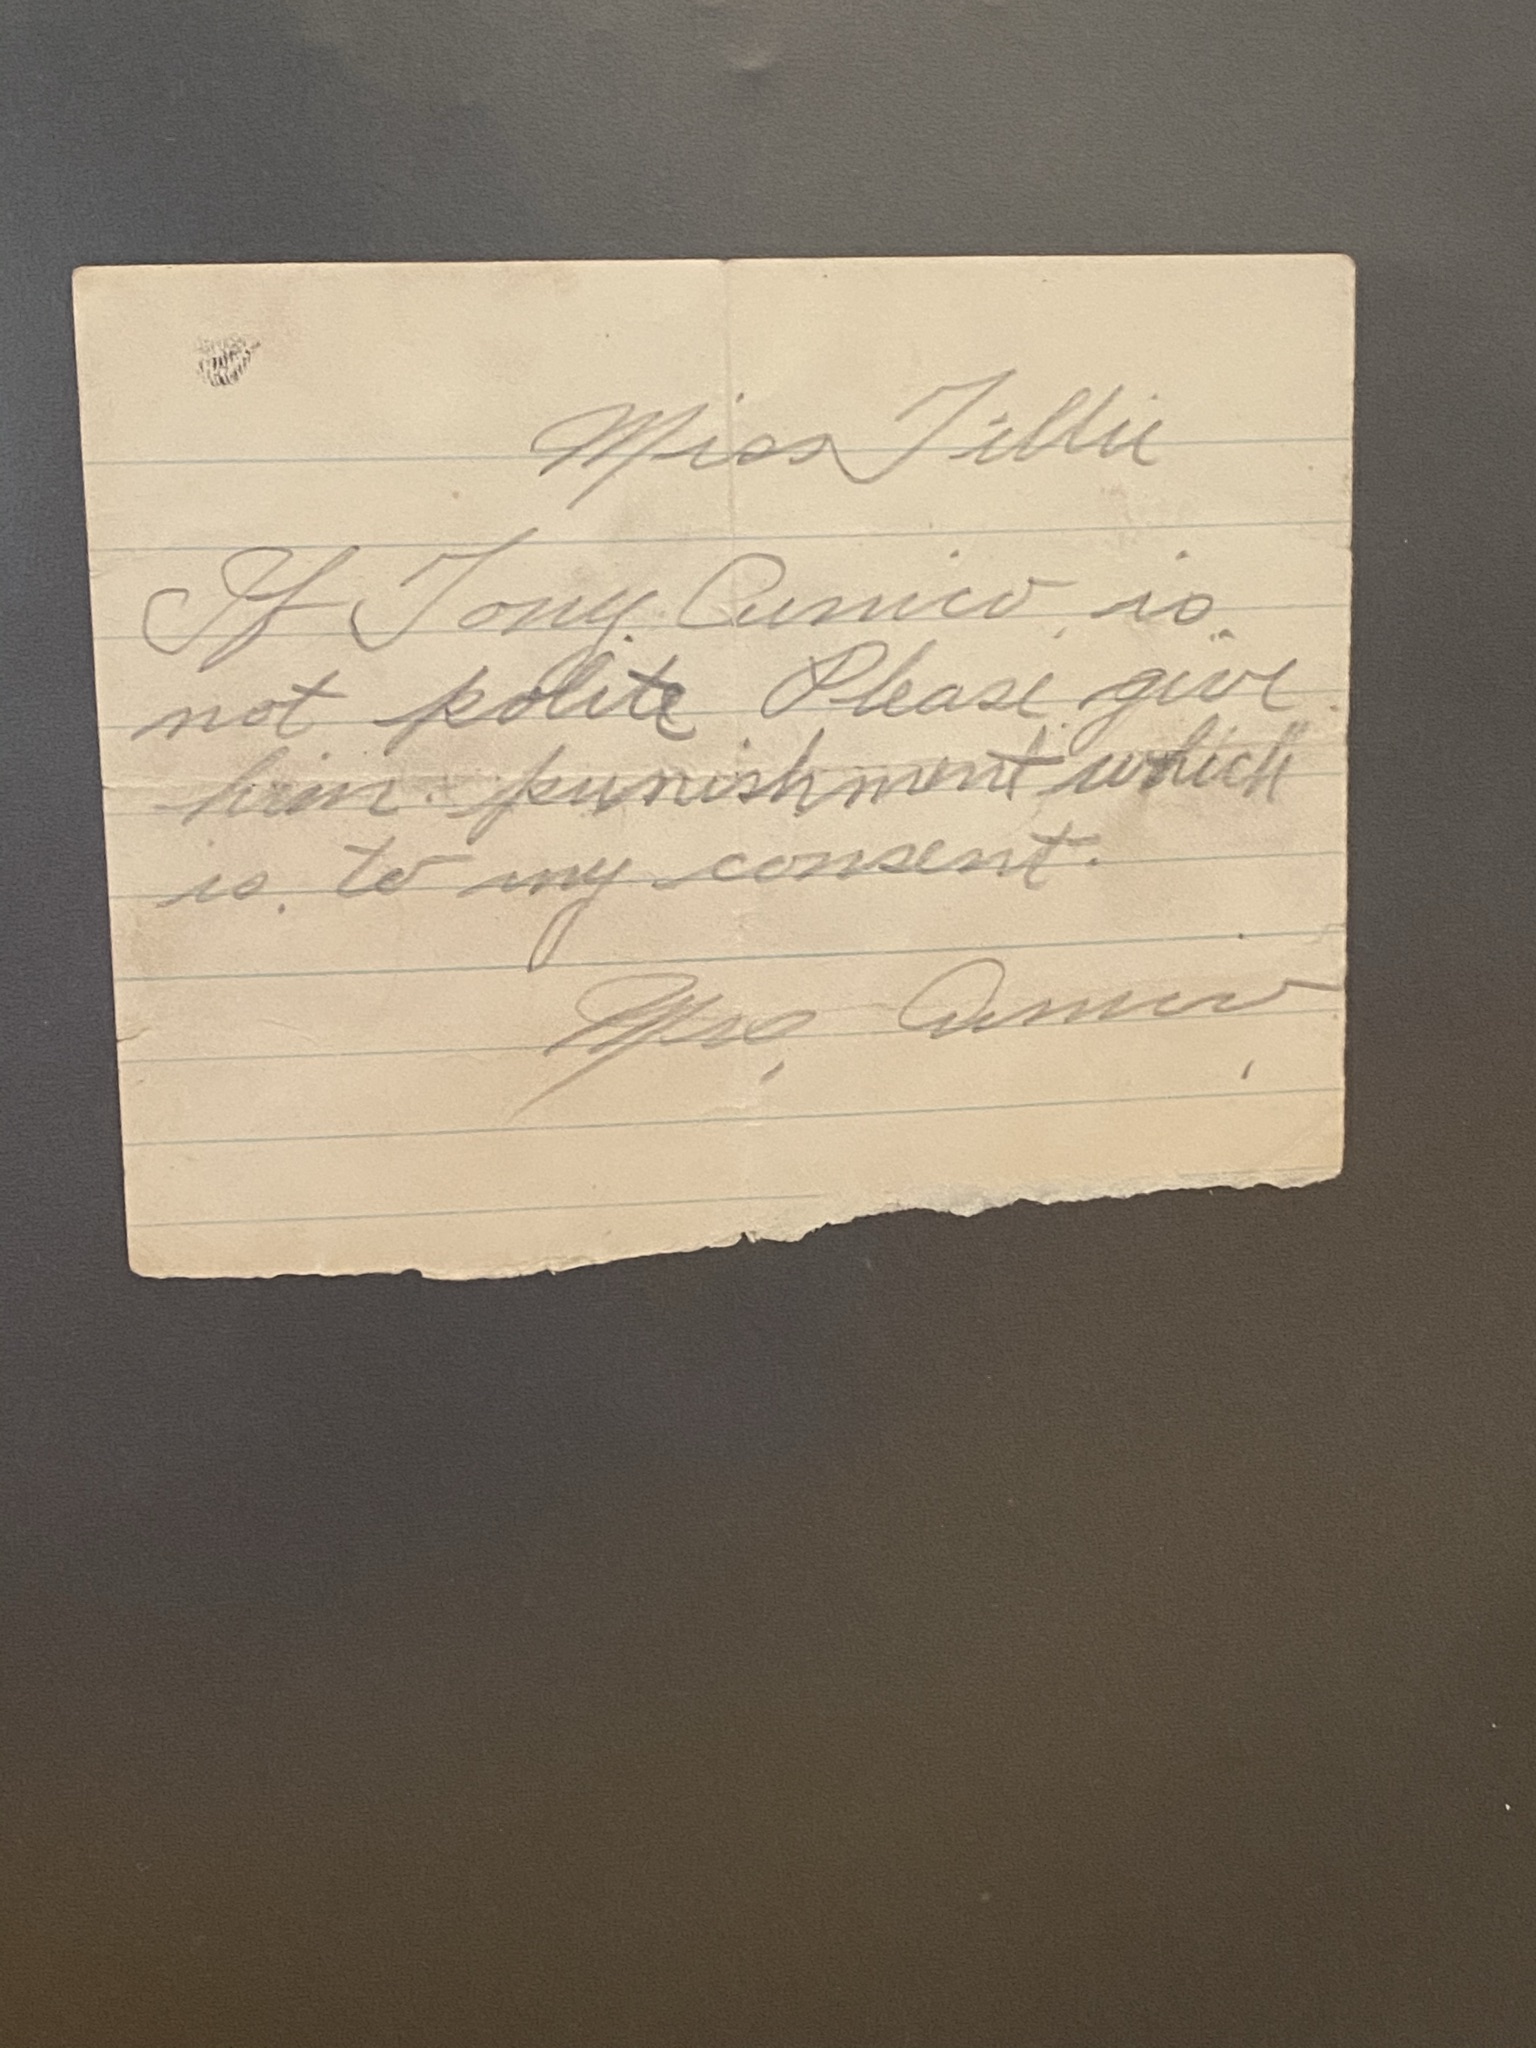 Miss Tillie
If Tony Cunico is
not polite Please give
him punishment which
is to my consent.
Mrs. Cunico